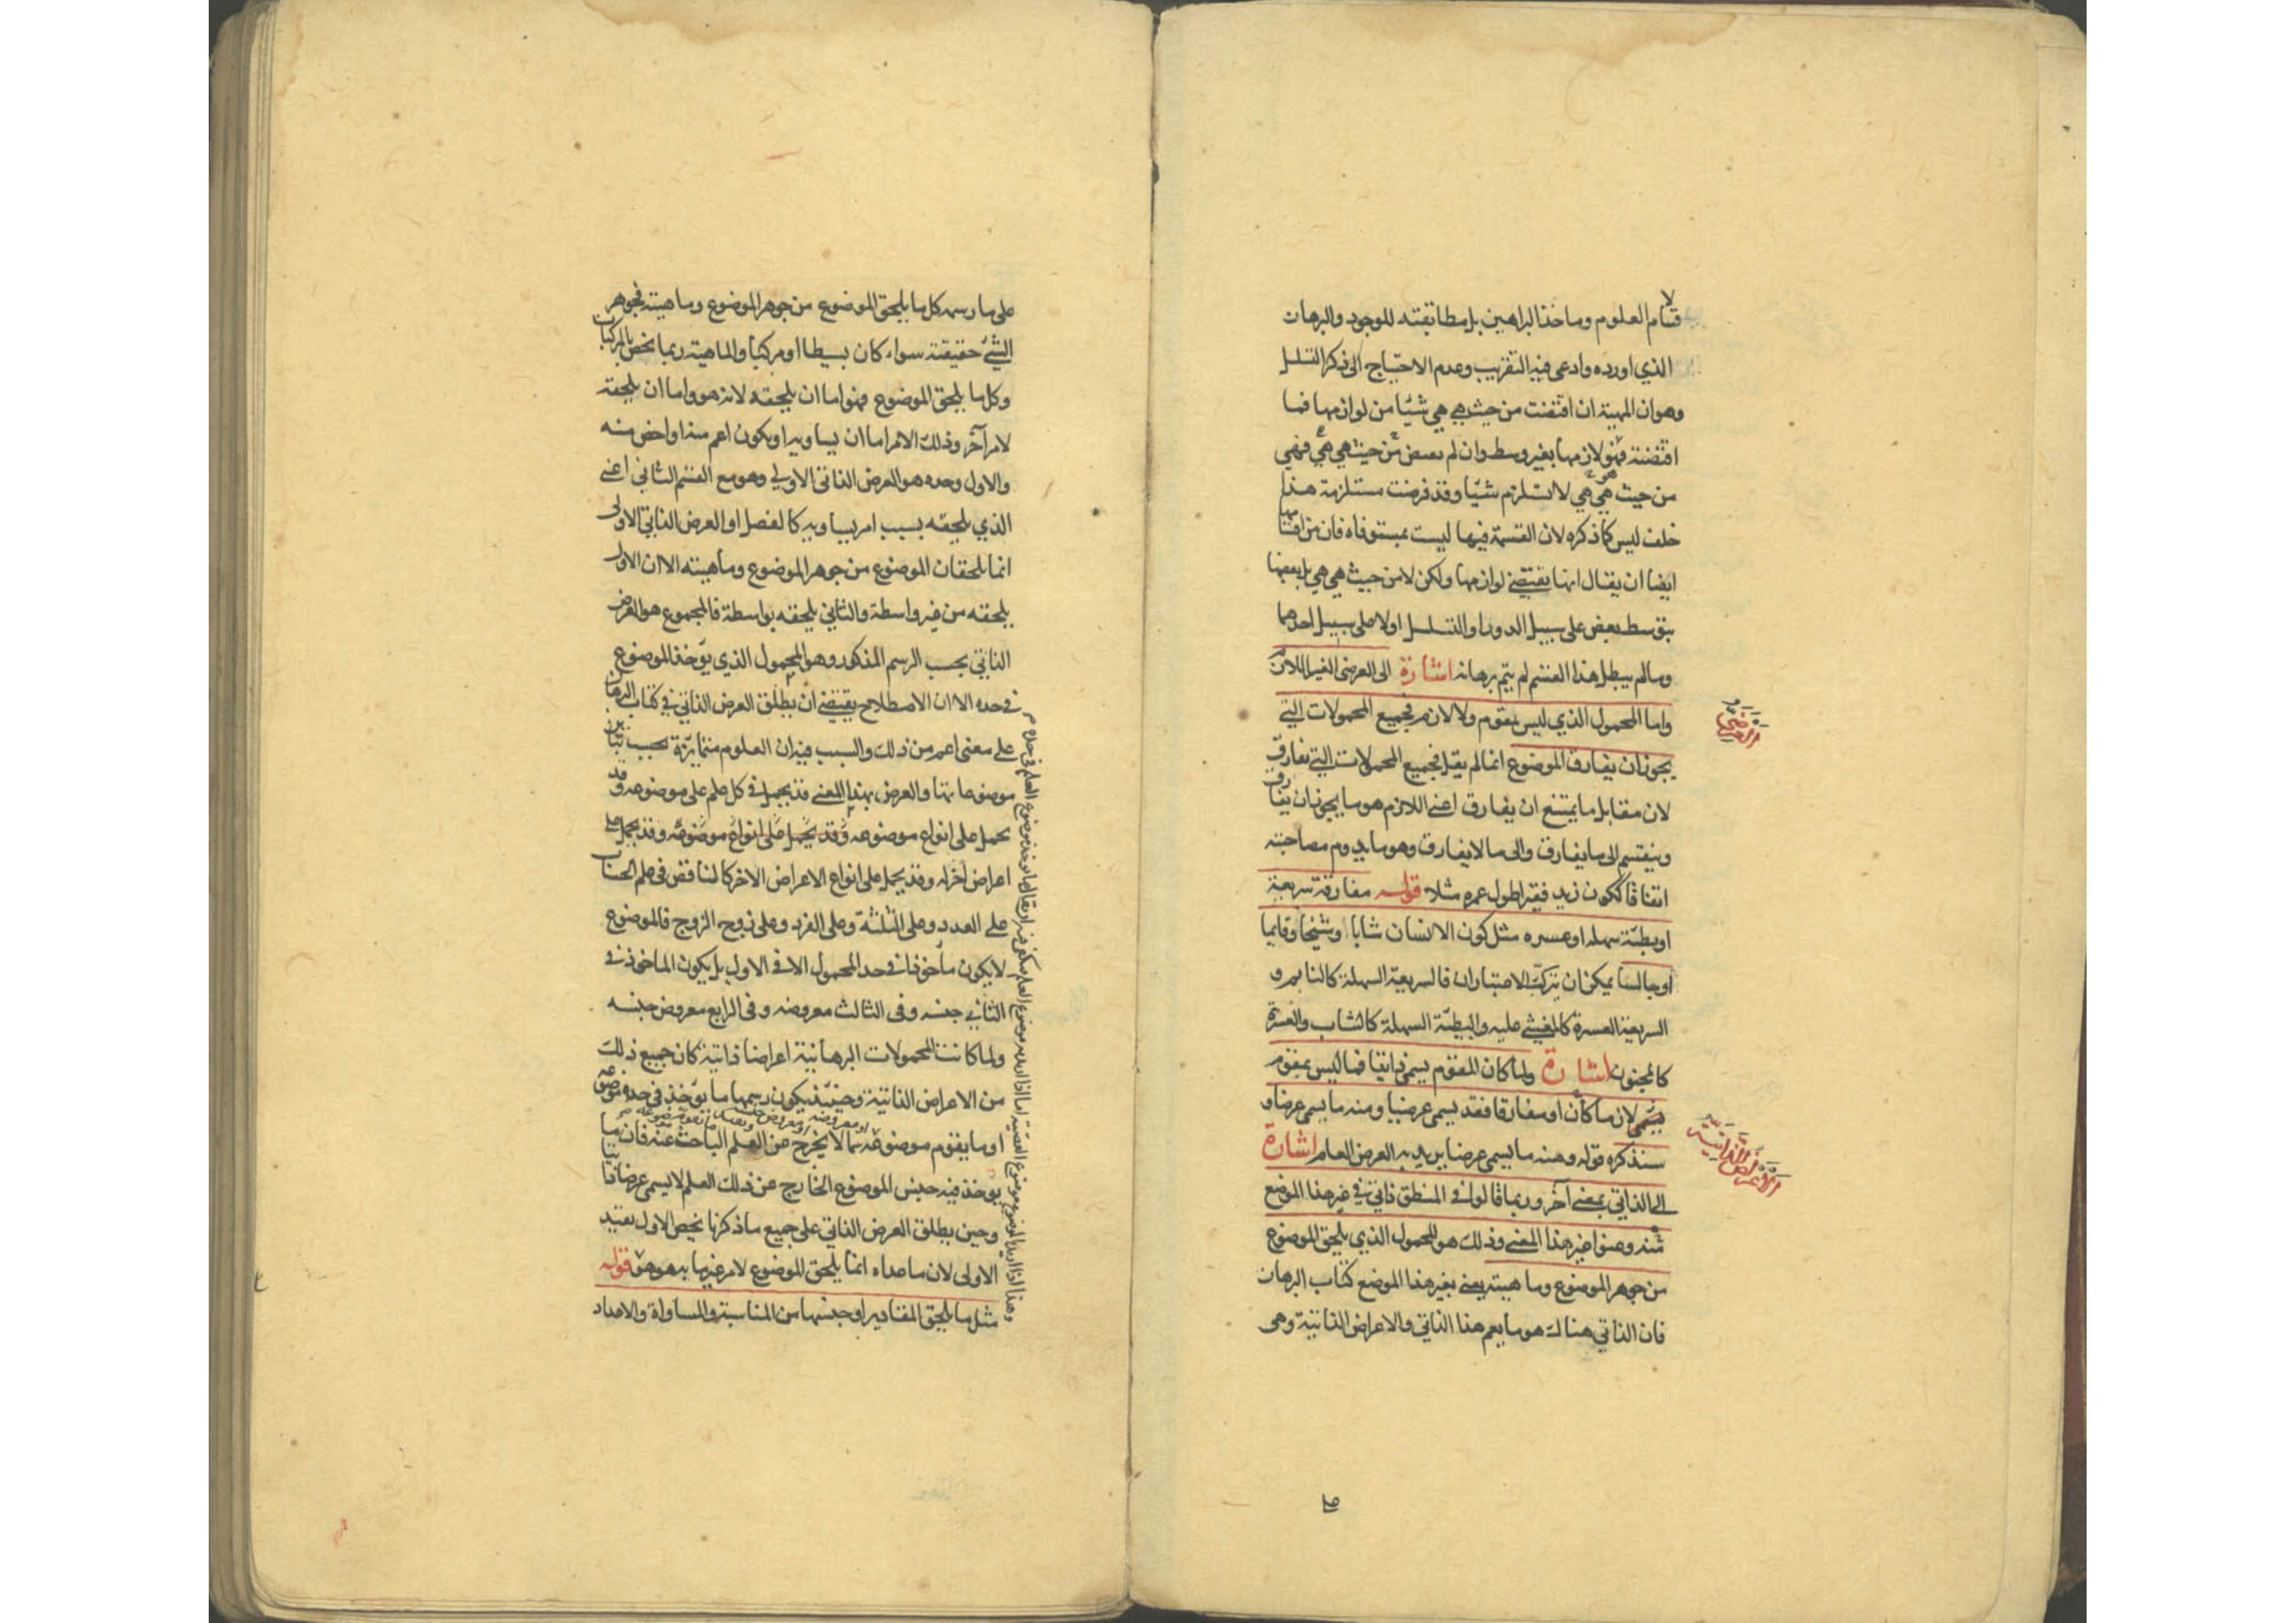 لاقسام العلوم وماخذ البراهين بل مطابقته للوجود والبرهان
الذي اورده وادعى فيه التقريب وعدم الاحتياج الى ذكر التسلسل
وهو ان المهية ان اقتضت من حيث هي هي شيئا من لوازمها فما
اقتضته فهو لازمها بغير وسط وان لم يقتض من حيث هي هي فهي
من حيث هي هي لا تستلزم شيئا وقد فرضت مستلزمة هذا
خلف ليس كما ذكره لان القسمة فيها ليست بمستوفاه فان من اقسامها
ايضا ان يقال انها يقتضي لوازمها ولكن لا من حيث هي هي بل بعضها
بتوسط بعض على سبيل الدور او التسلسل اولا على سبيل احدهما
وما لم يبطل هذا القسم لم يتم برهانه اشارة الى العرضي الغير اللازم
واما المحمول الذي ليس بمقوم ولا لازم فجميع المحمولات التي
يجوز ان يفارق الموضوع انما لم يقل فجميع المحمولات التي تفارق
لان مقابل ما يمتنع ان يفارق اعني اللازم هو ما يجوز ان يفارق
وينقسم الى ما يفارق والى ما لا يفارق وهو ما يدوم مصاحبته
اتفاقا ككون زيد فقيرا طول عمره مثلا قوله مفارقة سريعة
او بطيئة سهله او عسره مثل كون الانسان شابا وشيخا وقايما
او جالسا يمكن ان يتركب الاعتباران فالسريعة السهلة كالنايم و
السريعة العسرة كالمغشي عليه والبطيئة السهلة كالشاب والعسرة
كالمجنون اشارة ولما كان المقوم يسمى ذاتيا فما ليس بمقوم
لازما كان او مفارقا فقد يسمى عرضيا ومنه ما يسمى عرضا و
سنذكره قوله ومنه ما يسمى عرضا يريد به العرض العام اشارة
الى الذاتي بمعنى آخر وربما قالوا في المنطق ذاتي في غير هذا الموضع
منه وعنوا غير هذا المعنى وذلك هو المحمول الذي يلحق الموضوع
من جوهر الموضوع وماهيته يعني بغير هذا الموضع كتاب البرهان
فان الذاتي هناك هو ما يعم هذا الذاتي والاعراض الذاتية وهي
العرضي
الاعراض الذاتية
على ما رسمه كل ما يلحق الموضوع من جوهر الموضوع وماهيته فجوهر
الشئ حقيقته سواء كان بسيطا او مركبا والماهية ربما تخص بالمركبات
وكل ما يلحق الموضوع فهو اما ان يلحقه لانه هو واما ان يلحقه
لامر آخر وذلك الامر اما ان يساويه او يكون اعم منه او اخص منه
والاول وحده هو العرض الذاتي الاولي وهو مع القسم الثاني اعني
الذي يلحقه بسبب امر يساويه كالفصل او العرض الذاتي الاولى
انما يلحقان الموضوع من جوهر الموضوع وماهيته الا ان الاول
يلحقه من غير واسطة والثاني يلحقه بواسطة فالمجموع هو العرض
الذاتي بحسب الرسم المذكور وهو المحمول الذي يؤخذ الموضوع
في حده الا ان الاصطلاح يقتضي ان يطلق العرض الذاتي في كتاب البرهان
على معنى اعم من ذلك والسبب فيه ان العلوم متمايزة بحسب تباين
موضوعاتها والعرض بهذا المعنى قد يحمل في كل علم على موضوعه وقد
يحمل على انواع موضوعه وقد يحمل على انواع موضوعه وقد يحمل على
اعراض اخر له وقد يحمل على انواع الاعراض الاخر كالناقص في علم الحساب
على العدد وعلى الثلثة وعلى الفرد وعلى زوج الزوج فالموضوع
لا يكون مأخوذا في حد المحمول الا في الاول بل يكون الماخوذ في
الثاني جنسه وفي الثالث معروضه وفي الرابع معروض جنسه
ولما كانت المحمولات البرهانية اعراضا ذاتية كان جميع ذلك
من الاعراض الذاتية وحينئذ يكون رسمها ما يؤخذ في حده موضوعه
او معروضه او معروض جنسه
او ما يقوم موضوعه مما لا يخرج عن العلم الباحث عنه فان ما
يوخذ فيه جنس الموضوع الخارج عن ذلك العلم لا يسمى عرضا ذاتيا
وحين يطلق العرض الذاتي على جميع ما ذكرنا يخص الاول بقيد
الاولى لان ما عداه انما يلحق الموضوع لامر غير ما به هو هو قوله
مثل ما يلحق المقادير او جنسها من المناسبة والمساواة والاعداد